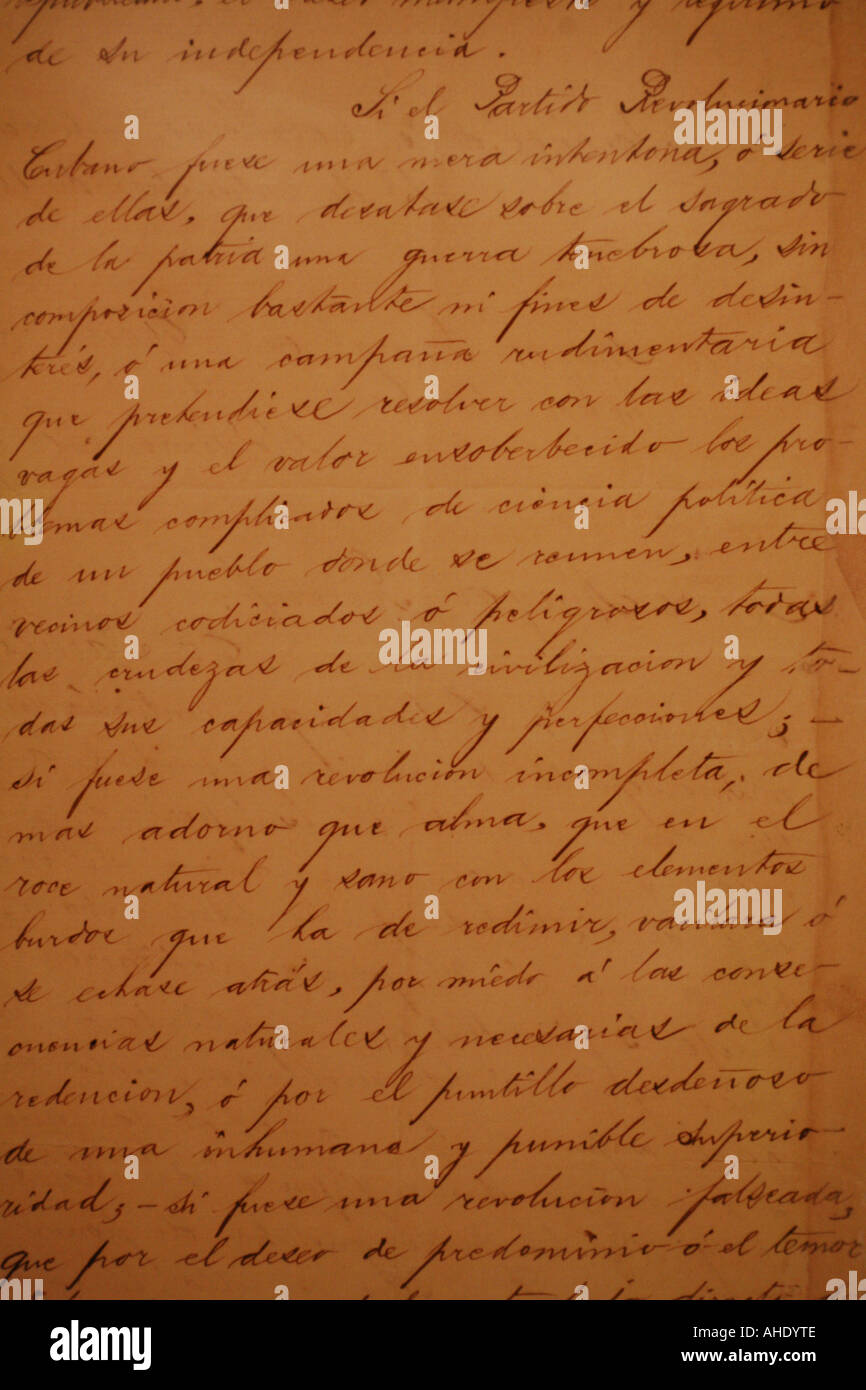 de su independencia.
Si el Partido Revolucionario
Cubano fuese una mera intentona, ó serie
de ellas, que desatase sobre el sagrado
de la patria una guerra tenebrosa, sin
composicion bastante ni fines de desin-
terés, ó una campaña rudimentaria
que pretendiese resolver con las ideas
vagas y el valor ensoberbecido los pro-
blemas complicados de ciencia política
de un pueblo donde se reunen, entre
vecinos codiciados ó peligrosos, todas
las crudezas de la civilizacion y to-
das sus capacidades y perfecciones; –
si fuese una revolucion incompleta, de
mas adorno que alma, que en el
roce natural y sano con los elementos
burdos que ha de redimir, vacilara ó
se echase atrás, por miedo á las conse-
cuencias naturales y necesarias de la
redencion, ó por el puntillo desdeñoso
de una inhumana y punible superio-
ridad; – si fuese una revolucion falseada,
que por el deseo de predominio ó el temor
alamy
alamy
Image ID: AHDYTE
www.alamy.com